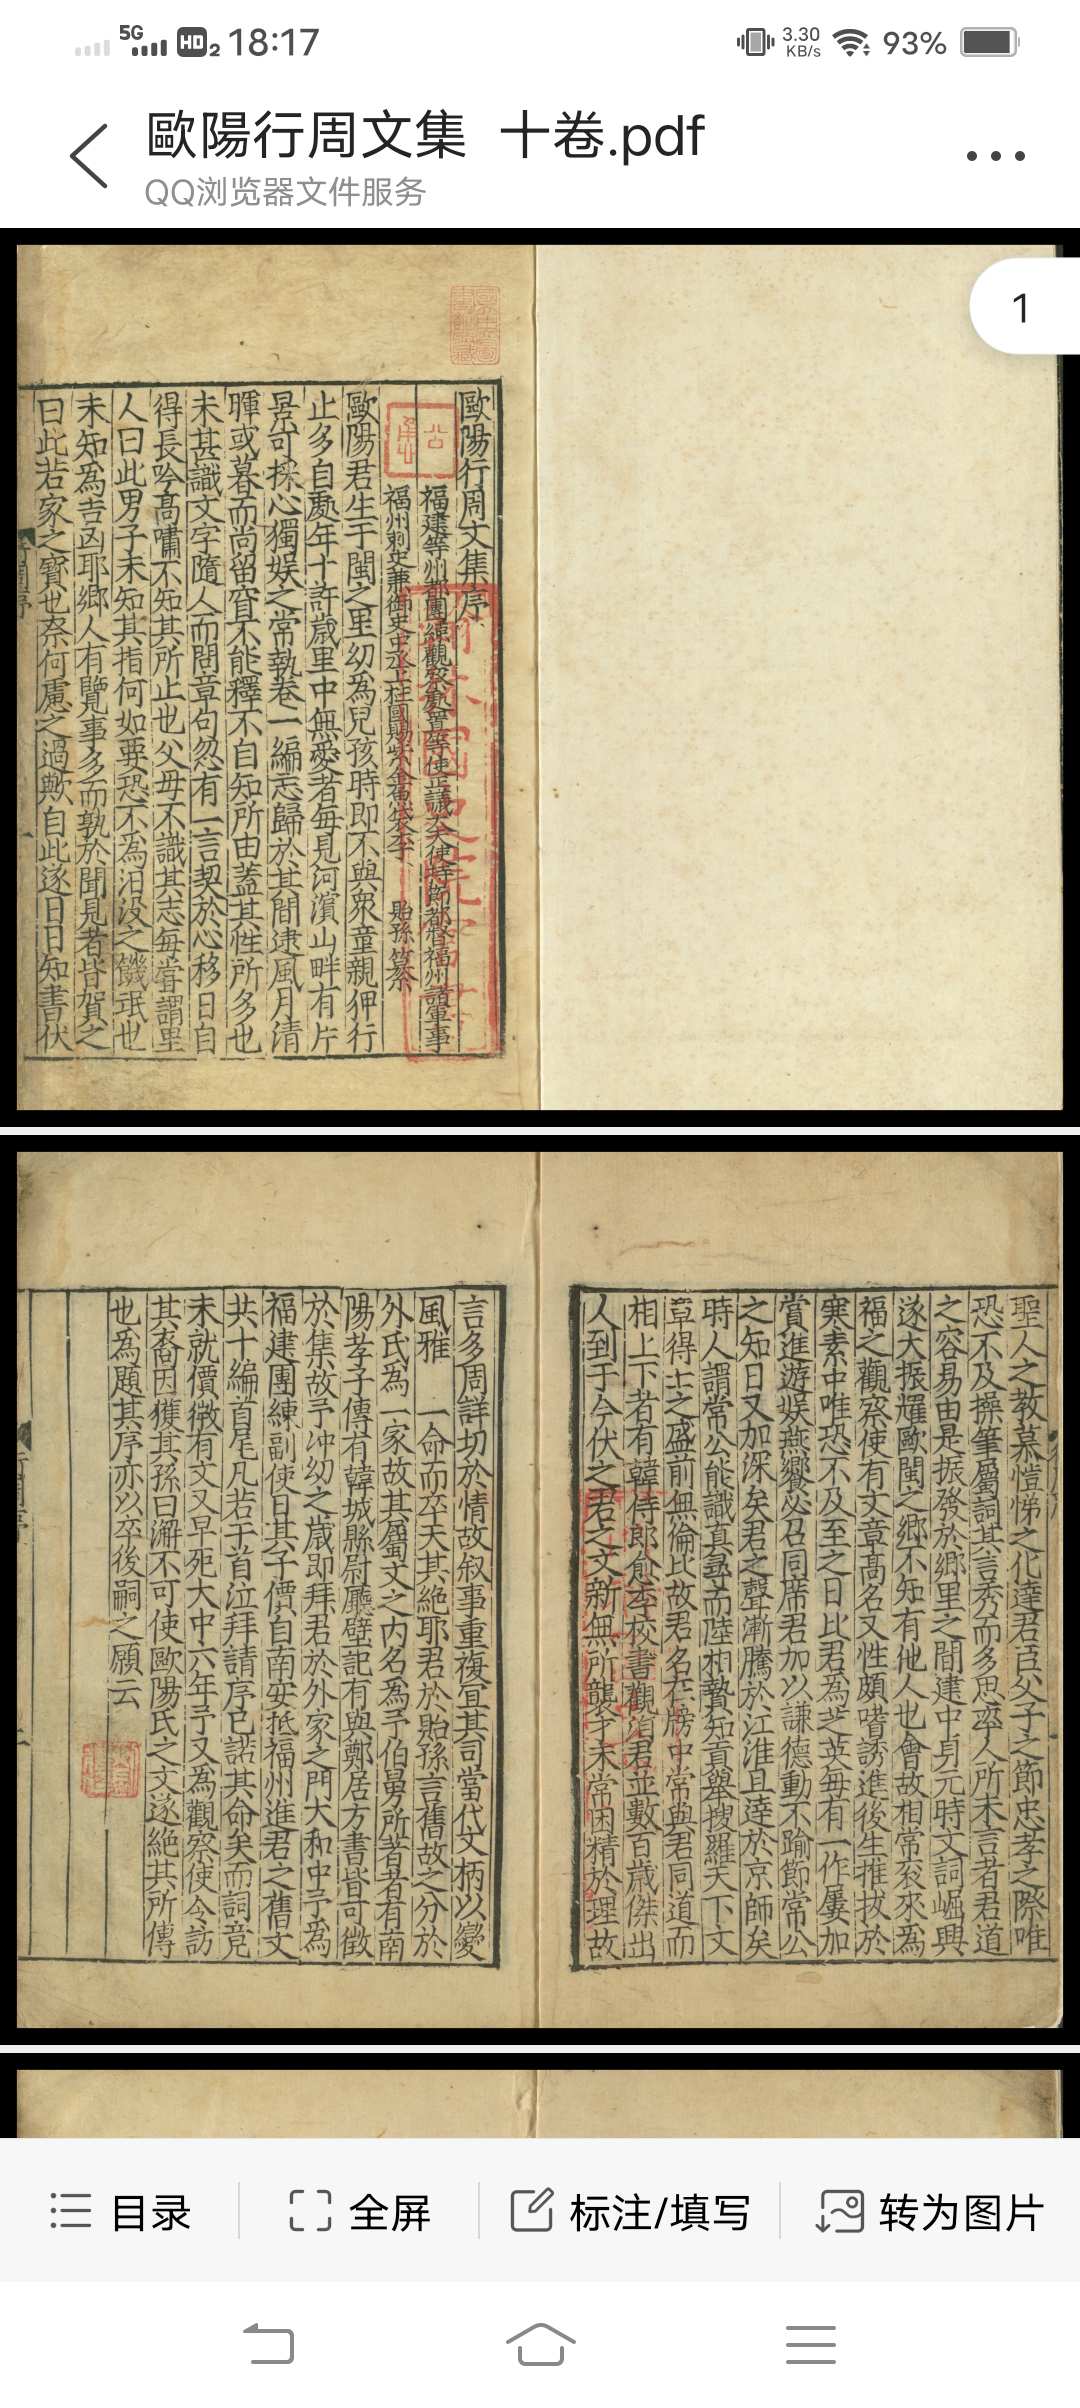 5G HD 2 18:17 3.30 KB/s 93%
歐陽行周文集 十卷.pdf
QQ浏览器文件服务
1
歐陽行周文集序
福建等州都團練觀察處置等使正議大夫使持節都督福州諸軍事
福州刺史兼御史中丞上柱國賜紫金魚袋李 貽孫 纂
歐陽君生于閩之里幼為兒孩時即不與眾童親狎行
止多自處年十許歲里中無愛者每見河濱山畔有片
景可採心獨娛之常執卷一編忘歸於其間逮風月清
暉或暮而尚留窅不能釋不自知所由蓋其性所多也
未甚識文字隨人而問章句忽有一言契於心移日自
得長吟高嘯不知其所止也父母不識其志每嘗謂里
人曰此男子未知其指何如要恐不為汩沒之饑氓也
未知為吉凶耶鄉人有覽事多而孰於聞見者皆賀之
曰此若家之寶也奈何慮之過歟自此遂日日知書伏
聖人之教慕愷悌之化達君臣父子之節忠孝之際唯
恐不及操筆屬詞其言秀而多思率人所未言者君道
之容易由是振發於鄉里之間建中貞元時文詞崛興
遂大振耀歐閩之鄉不知有他人也會故相常袞來為
福之觀察使有文章高名又性頗嗜誘進後生推拔於
寒素中唯恐不及至之日比君為芝英每有一作屢加
賞進遊娛燕饗必召同席君加以謙德動不踰節常公
之知日又加深矣君之聲漸騰於江淮且達於京師矣
時人謂常公能識真尋而陸相贄知貢舉搜羅天下文
章得士之盛前無倫比故君名在牓中常與君同道而
相上下者有韓侍郎愈李校書觀洎君並數百歲傑出
人到于今伏之君之文新無所襲才未常困精於理故
言多周詳切於情故叙事重複宜其司當代文柄以變
風雅 一命而卒天其絕耶君於貽孫言舊故之分於
外氏為一家故其屬文之內名為予伯舅所著者有南
陽孝子傳有韓城縣尉廳壁記有與鄭居方書皆可徵
於集故予冲幼之歲即拜君於外家之門大和中予為
福建團練副使日其子價自南安抵福州進君之舊文
共十編首尾凡若干首泣拜請序已諾其命矣而詞竟
未就價微有文又早死大中六年予又為觀察使令訪
其裔因獲其孫曰澥不可使歐陽氏之文遂絕其所傳
也為題其序亦以卒後嗣之願云
目录 全屏 标注/填写 转为图片